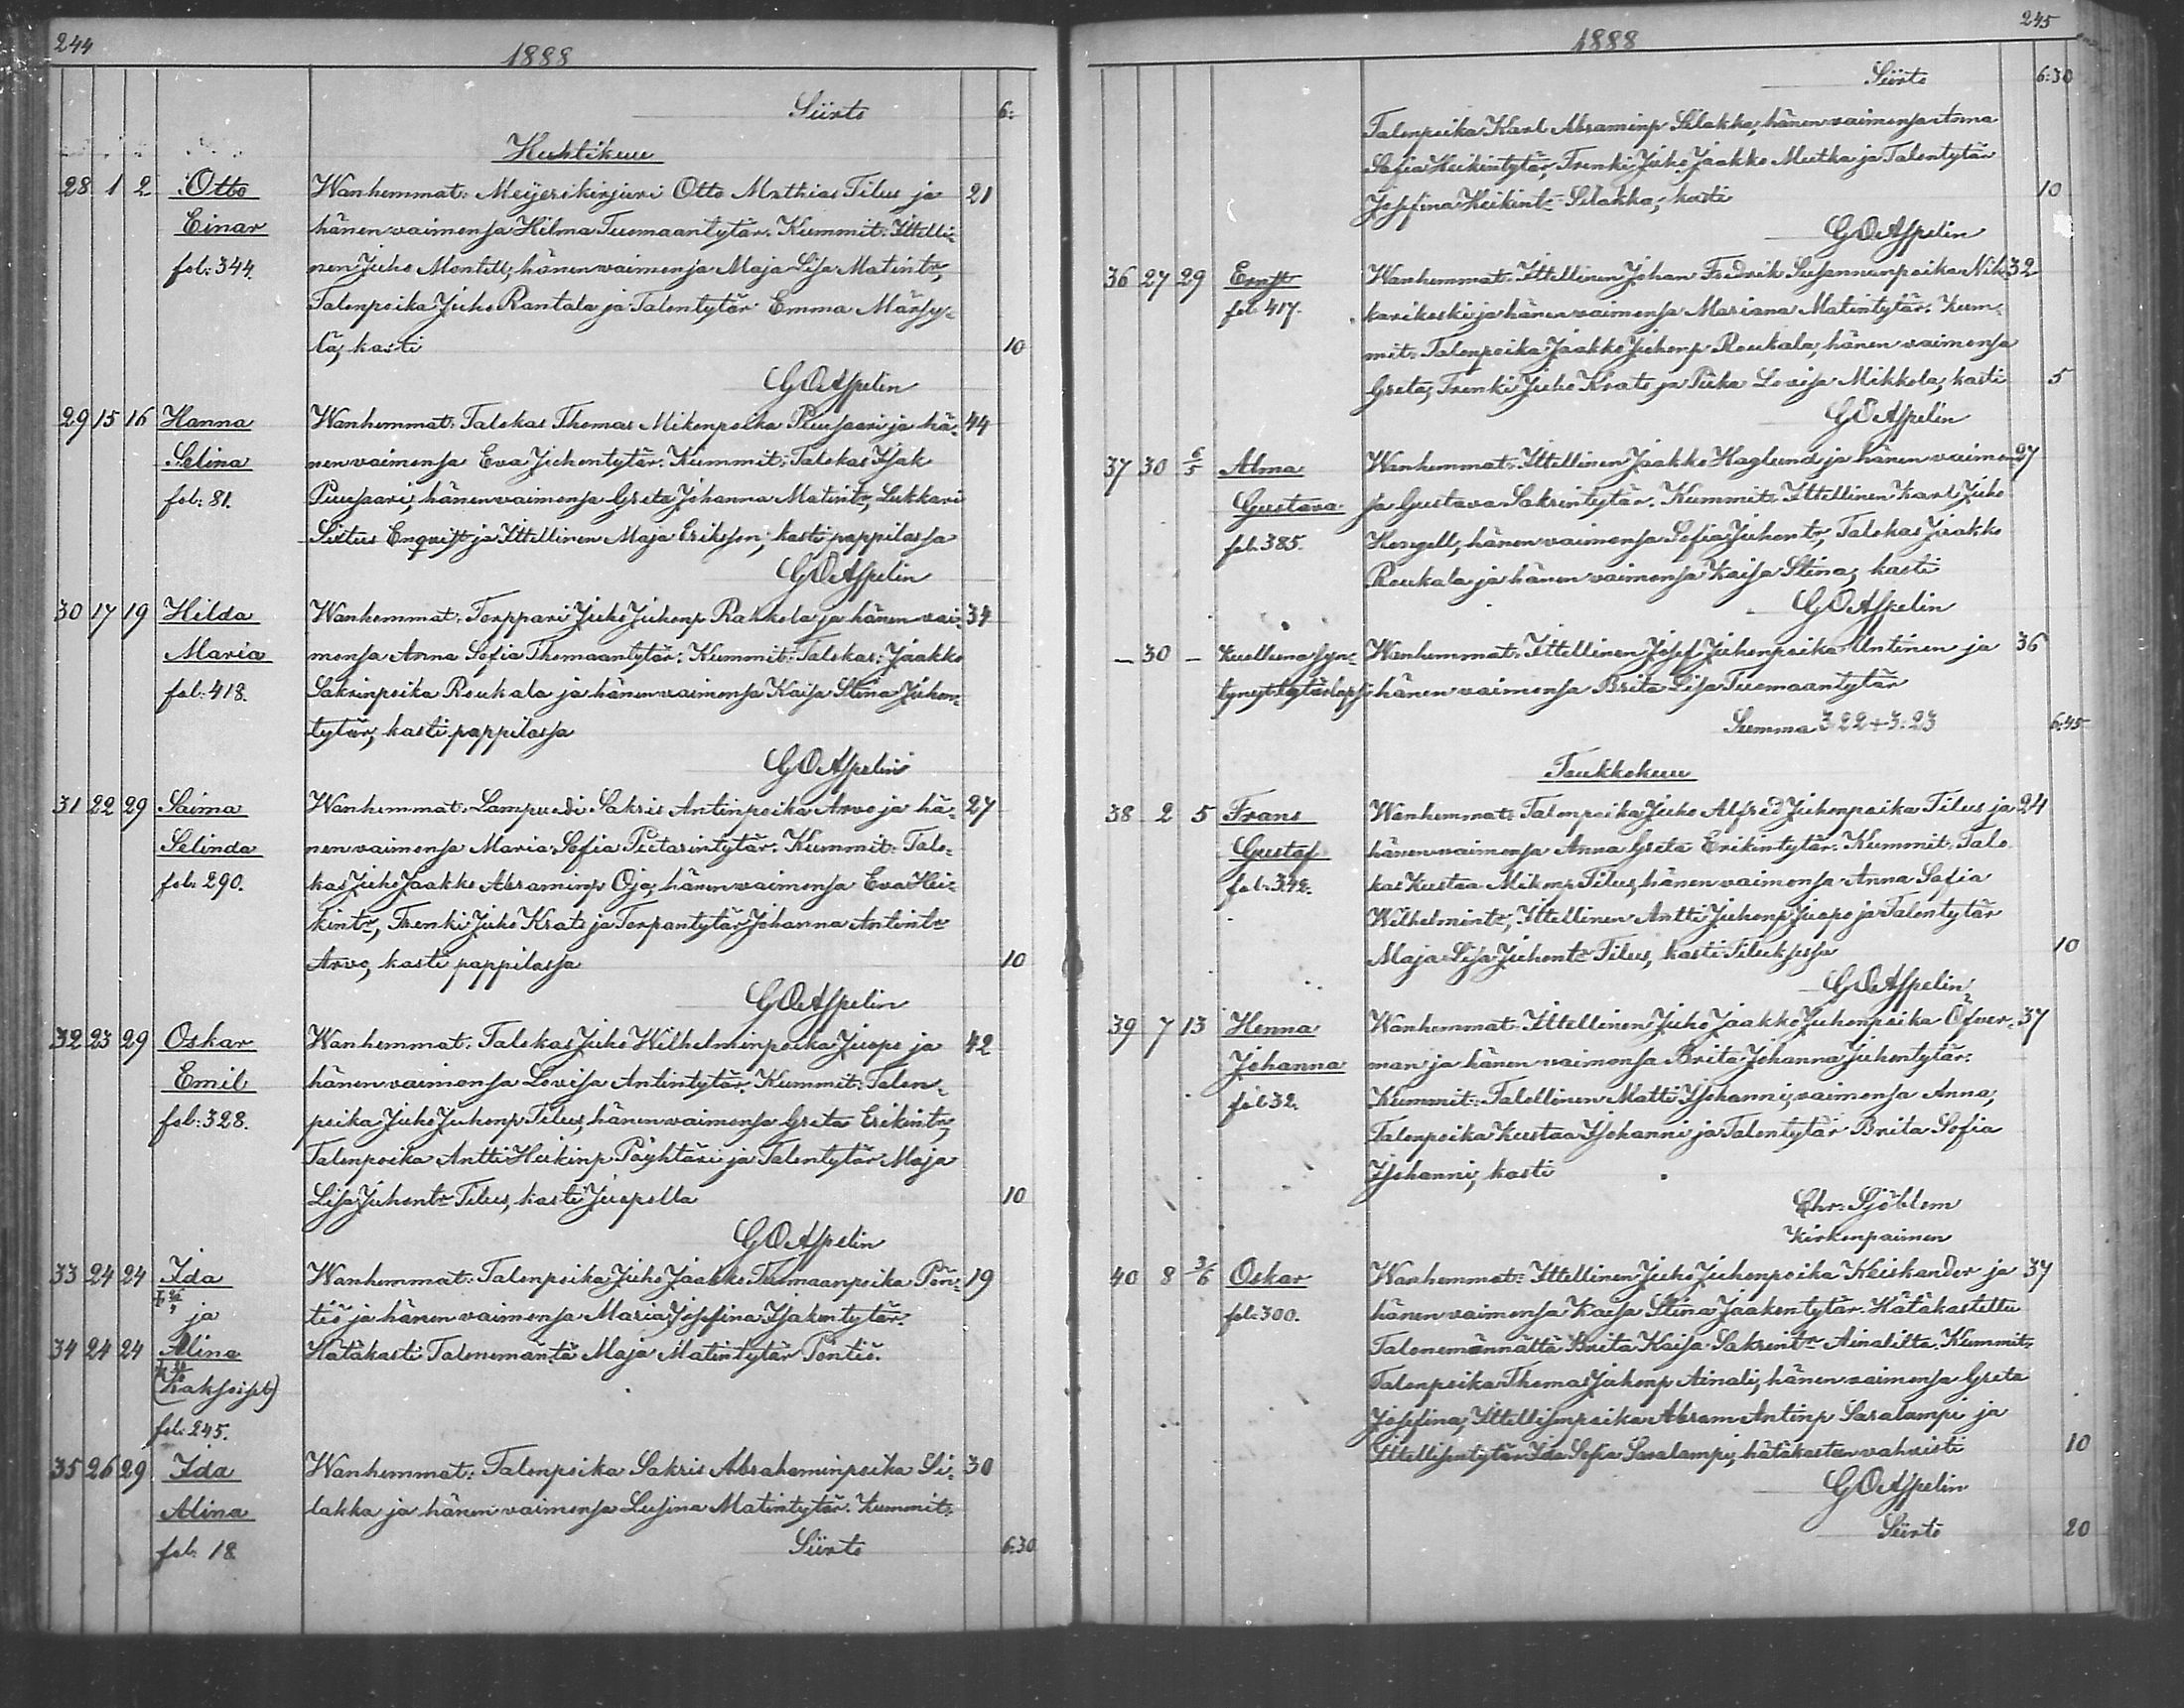 244
1888
Siirto 6:
Huhtikuu
28 1 2 Otto Wanhemmat: Meijerikirjuri Otto Mathias Tilus ja 21
Einar hänen vaimonsa Hilma Tuomaantytär. Kummit: Ittelli-
fol: 344. nen Juho Montell, hänen vaimonsa Maja Lisa Matintr,
Talonpoika Juho Rantala ja Talontytär Emma Märsy-
lä, kasti 10
GOAspelin
29 15 16 Hanna Wanhemmat: Talokas Thomas Mikonpoika Puusaari ja hä- 44
Selina nen vaimonsa Eva Juhontytär. Kummit: Talokas Isak
fol: 81. Puusaari, hänen vaimonsa Greta Johanna Matintr, Lukkari
Sixtus Enqvist ja Ittellinen Maja Eriksson; kasti pappilassa
GOAspelin
30 17 19 Hilda Wanhemmat: Torppari Juho Juhonp Rahkola ja hänen vai- 34
Maria monsa Anna Sofia Thomaantytär: Kummit: Talokas: Jaakko
fol: 418. Sakrinpoika Roukala ja hänen vaimonsa Kaisa Stina Juhon-
tytär, kasti pappilassa
GOAspelin
31 22 29 Saima Wanhemmat: Lampuodi Sakris Antinpoika Arvo ja hä- 27
Selinda nen vaimonsa Maria Sofia Pietarintytär. Kummit: Talo-
fol: 290. kas Juho Jaakko Abraminp Oja, hänen vaimonsa Eva Hei-
kintr, Trenki Juho Krats ja Torpantytär Johanna Antintr
Arvo, kasti pappilassa 10
GOAspelin
32 23 29 Oskar Wanhemmat: Talokas Juho Wilhelminpoika Juopo ja 42
Emil hänen vaimonsa Lovisa Antintytär. Kummit: Talon-
fol: 328. poika Juho Juhonp Tilus, hänen vaimonsa Greta Erikintr,
Talonpoika Antti Heikinp Pöyhtäri ja Talontytär Maja
Lisa Juhontr Tilus, kasti Juopolla 10
GOAspelin
33 24 24 Ida Wanhemmat: Talonpoika Juho Jaakko Tuomaanpoika Pön- 19
ja tiö ja hänen vaimonsa Maria Josefina Isakintytär.
34 24 24 Alina Hätäkasti Talonemäntä Maja Matintytär Pöntiö.
(kaksoiset)
fol: 245.
35 26 29 Ida Wanhemmat: Talonpoika Sakris Abrahaminpoika Si- 30
Alina lakka ja hänen vaimonsa Lusina Matintytär. Kummit:
fol: 18 Siirto 6:30
245
1888
Siirto 6:30
Talonpoika Karl Abraminp Silakka, hänen vaimonsa Anna
Sofia Heikintytär, Trenki Juho Jaakko Mutka ja Talontytär
Josefina Heikintr Silakka; kasti 10
GOAspelin
36 27 29 Ernst Wanhemmat: Ittellinen Johan Fredrik Susannanpoika Nik- 32
fol: 417. karikoski ja hänen vaimonsa Mariana Matintytär. Kum-
mit: Talonpoika Jaakko Juhonp Roukala, hänen vaimonsa
Greta, Trenki Juho Krats ja Piika Lovisa Mikkola, kasti 5
GOAspelin
37 30 6/5 Alma Wanhemmat: Ittellinen Jaakko Haglund ja hänen vaimon- 27
Gustava sa Gustava Sakrintytär. Kummit: Ittellinen Karl Juho
fol: 385. Korgell, hänen vaimonsa Sofia Juhontr, Talokas Jaakko
Roukala ja hänen vaimonsa Kaisa Stina; kasti
GOAspelin
— 30 — Kuolleena syn- Wanhemmat: Ittellinen Josef Juhonpoika Untinen ja 36
tynyt tytärlapsi hänen vaimonsa Brita Lisa Tuomaantytär
Summa 3:22 + 3:23 6:45
Toukokuu
38 2 5 Frans Wanhemmat: Talonpoika Juho Alfred Juhonpoika Tilus ja 24
Gustaf hänen vaimonsa Anna Greta Erikintytär. Kummit: Talo
fol: 342. kas Kustaa Mikonp Tilus, hänen vaimonsa Anna Sofia
Wilhelmintr, Ittellinen Antti Juhonp Juopo ja Talontytär
Maja Lisa Juhontr Tilus, kasti Tiluksessa 10
GOAspelin
39 7 13 Henna Wanhemmat: Ittellinen Juho Jaakko Juhonpoika Öfver- 37
Johanna man ja hänen vaimonsa Brita Johanna Juhontytär:
fol: 32. Kummit: Talollinen Matti Isohanni, vaimonsa Anna,
Talonpoika Kustaa Isohanni ja Talontytär Brita Sofia
Isohanni, kasti
Chr: Sjöblom
Kirkonpaimen
40 8 3/6 Oskar Wanhemmat: Ittellinen Juho Juhonpoika Keiskander ja 37
fol: 300. hänen vaimonsa Kaisa Stina Jaakontytär. Hätäkastettu
Talonemännältä Brita Kaisa Sakrintr Ainalilta. Kummit:
Talonpoika Thomas Juhonp Ainali, hänen vaimonsa Greta
Josefina, Ittellisenpoika Abram Antinp Saralampi ja
Ittellisentytär Ida Sofia Saralampi, hätäkasteen vahvisti 10
GOAspelin
Siirto 20